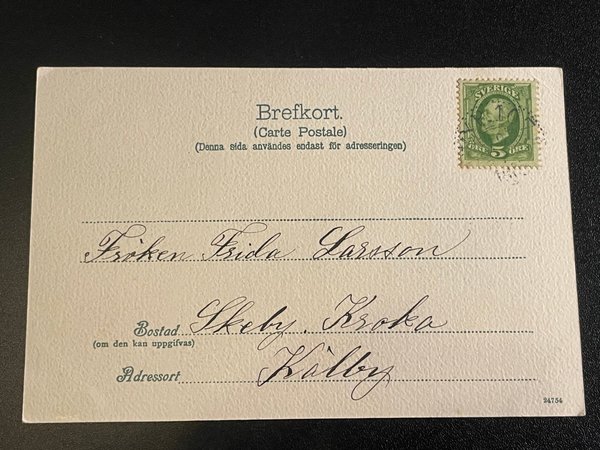 Brefkort.
(Carte Postale)
(Denna sida användes endast för adresseringen)
SVERIGE
5
ÖRE ÖRE
Fröken Frida Larsson
Bostad Skeby. Kroka
(om den kan uppgifvas)
Adressort Kålby
24754